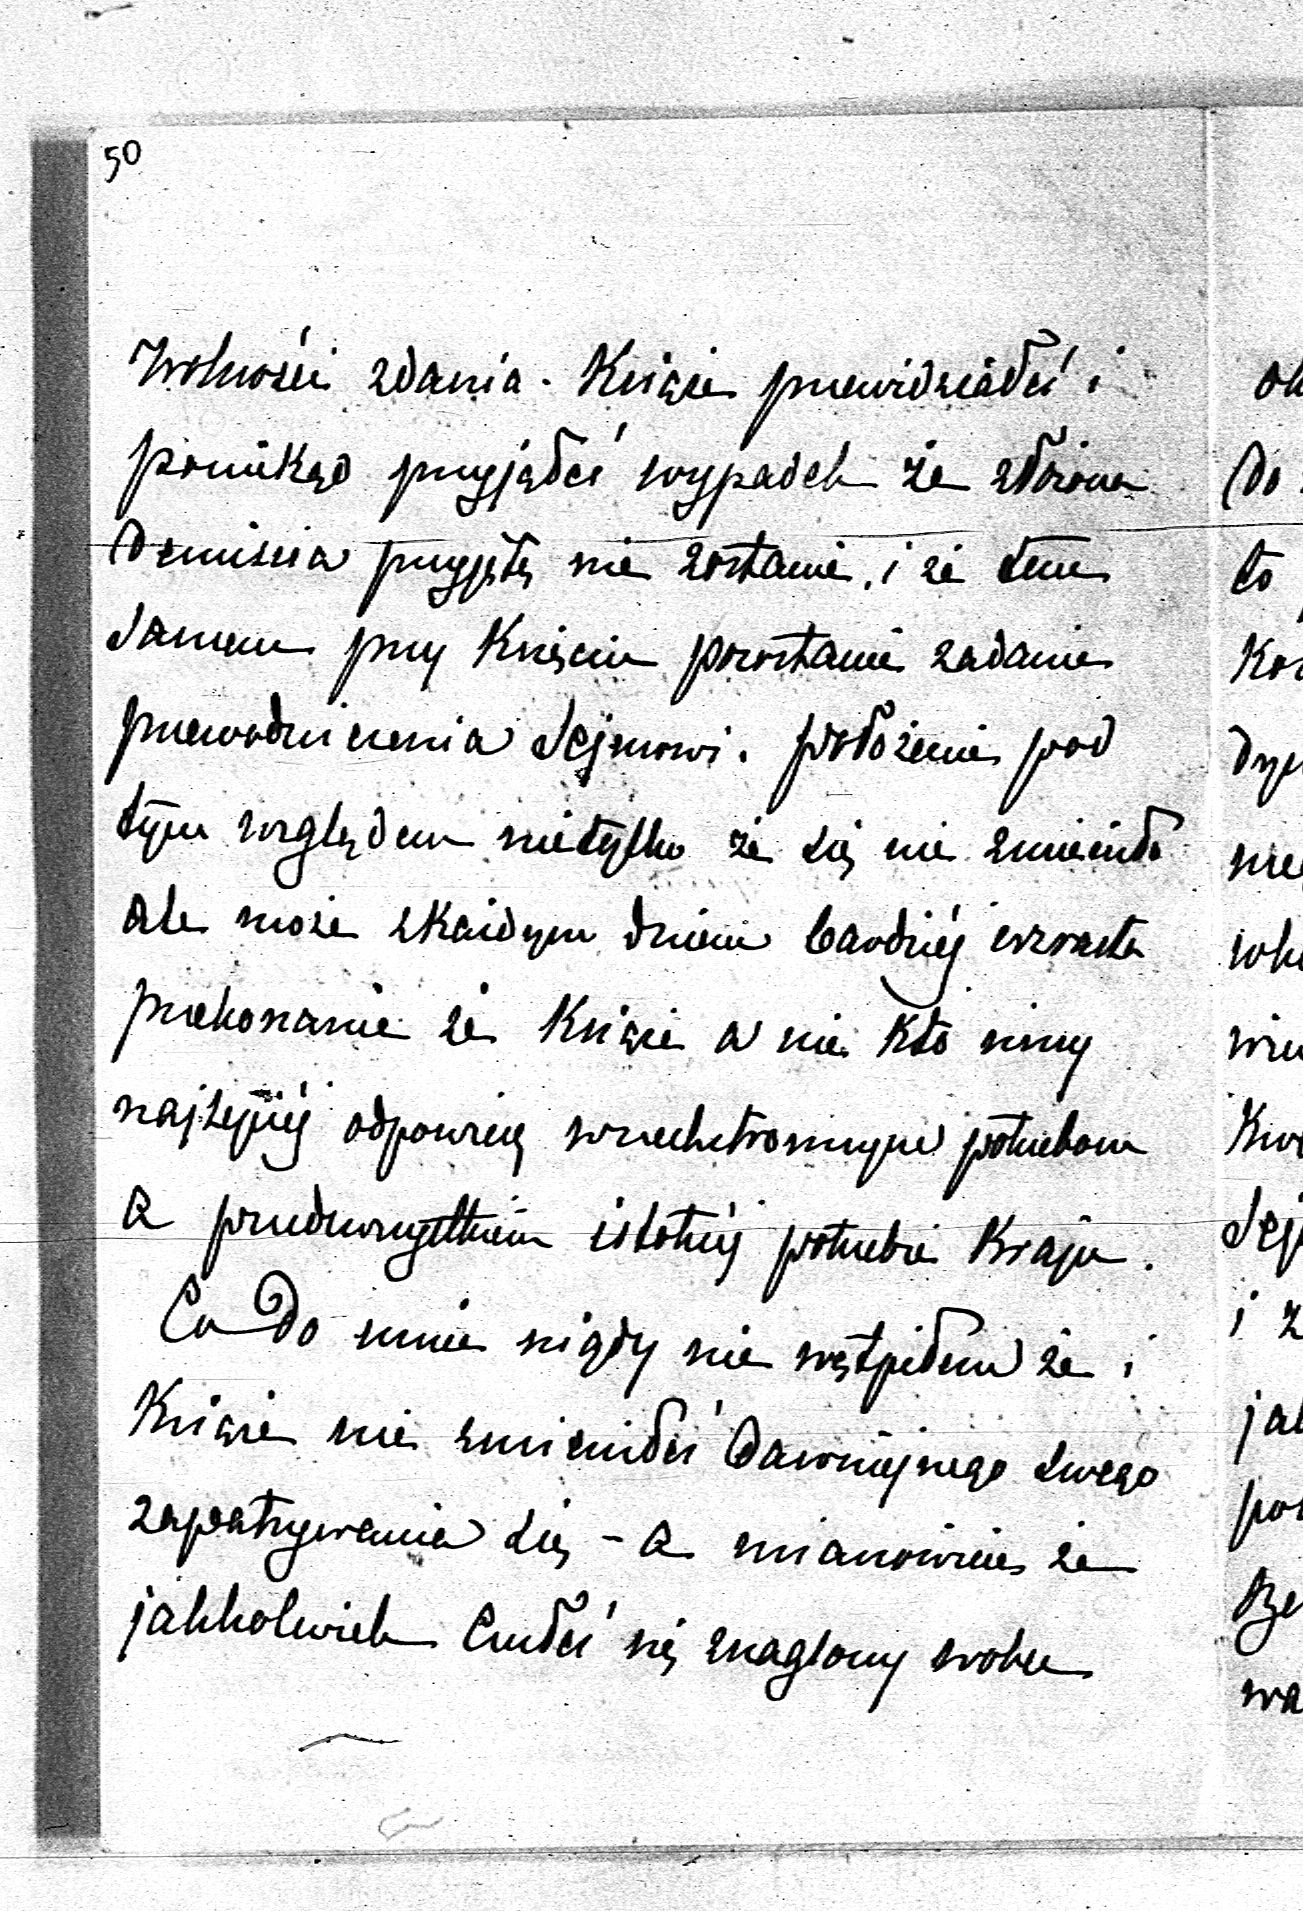 50
Wolności zdania. Książe przewidziałeś i
poniekąd przyjąłeś wypadek że złożona
Demissia przyjętą nie zostanie, i że tem
samem przy Księciu pozostanie zadanie
przewodniczenia Sejmowi. Położenie pod
tym względem nietylko że się nie zmieniło
ale może zkażdym dniem bardziéj wzrasta
przekonanie że Książe a nie kto inny
najlepiéj odpowiesz wszechstronnym potrzebom
a przedewszystkiem istotnéj potrzebie Kraju.
Co do mnie nigdy nie wątpiłem że i
Książe nie zmieniłeś dawniejszego swego
zapatrywania się - a mianowicie że
jakkolwiek Czułeś się znaglony wobec
ok
do
to
Sej
i z
jak